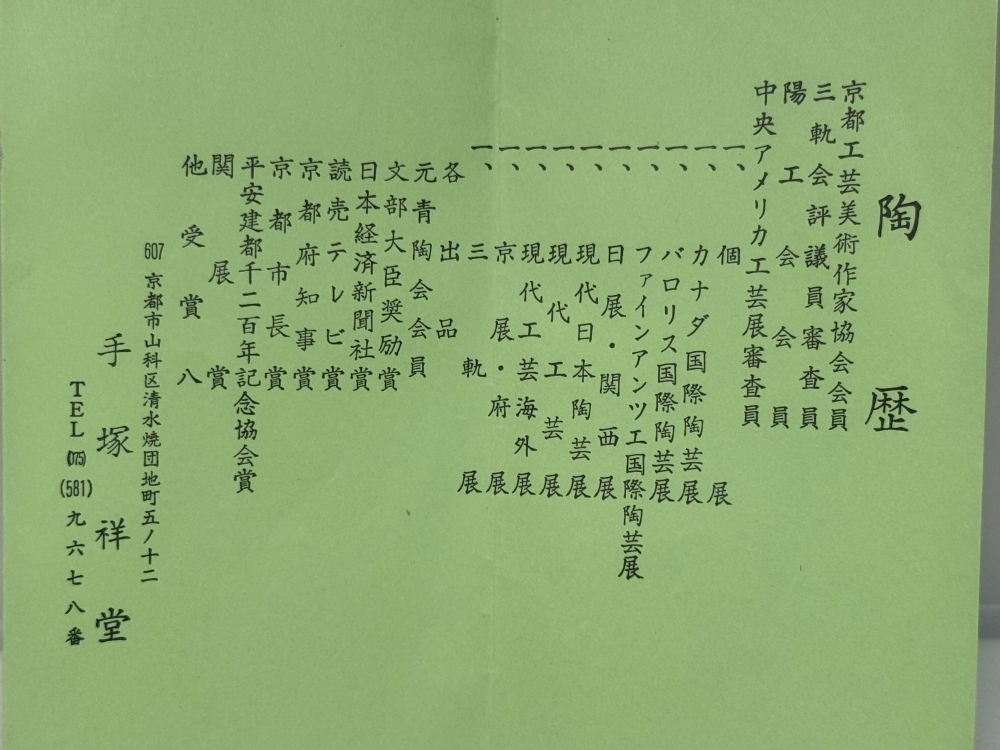 陶歴
京都工芸美術作家協会会員
三軌会評議員審査員
陽工会会員
中央アメリカ工芸展審査員
一、個展
一、カナダ国際陶芸展
一、バロリス国際陶芸展
一、ファインアンツ工国際陶芸展
一、日展・関西展
一、現代日本陶芸展
一、現代工芸展
一、現代工芸海外展
一、京展・府展
一、三軌展
各出品
元青陶会会員
文部大臣奨励賞
日本経済新聞社賞
読売テレビ賞
京都府知事賞
京都市長賞
平安建都千二百年記念協会賞
関展賞
他受賞八
607 京都市山科区清水焼団地町五ノ十二
手塚祥堂
TEL(075)(581)九六七八番